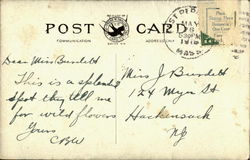 POST CARD
COMMUNICATION
ADDRESS ONLY
MAY
MASS
Dear Miss Burdett
This is a splendid
spot they tell me
for wild flowers
Yours
CBW
Miss J Burdett
124 Myer St
Hackensack
NJ